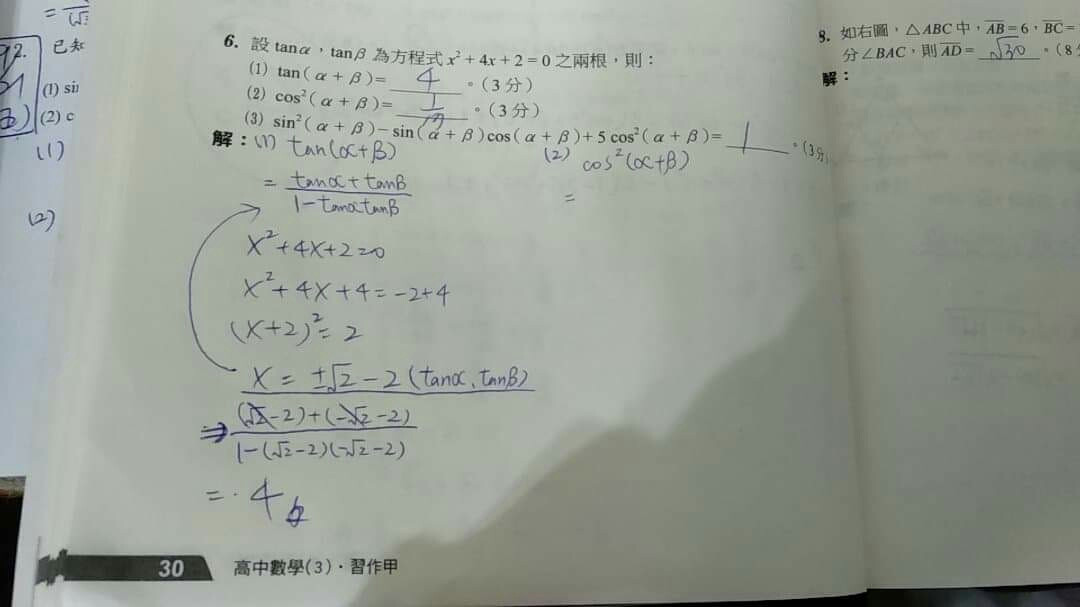 = 
(√3
92.
已知
(1) sin
(2) c
(1)
(2)
6. 設 tanα,tanβ 為方程式 x² + 4x + 2 = 0 之兩根,則:
(1) tan( α + β )= 4 。(3 分)
(2) cos²( α + β )= 1/17 。(3 分)
(3) sin²( α + β ) − sin( α + β ) cos( α + β ) + 5 cos²( α + β )= 1 。(3 分)
解:(1) tan(α+β)
= (tanα + tanβ)/(1 − tanα tanβ)
x² + 4x + 2 = 0
x² + 4x + 4 = −2+4
(x+2)² = 2
x = ±√2 − 2 (tanα、tanβ)
⇒ ((√2−2)+(−√2−2))/(1−(√2−2)(−√2−2))
= 4
(2) cos²(α+β)
=
30 高中數學(3)・習作甲
8. 如右圖,△ABC 中,AB = 6,BC =
分∠BAC,則 AD = √30 。(8
解: